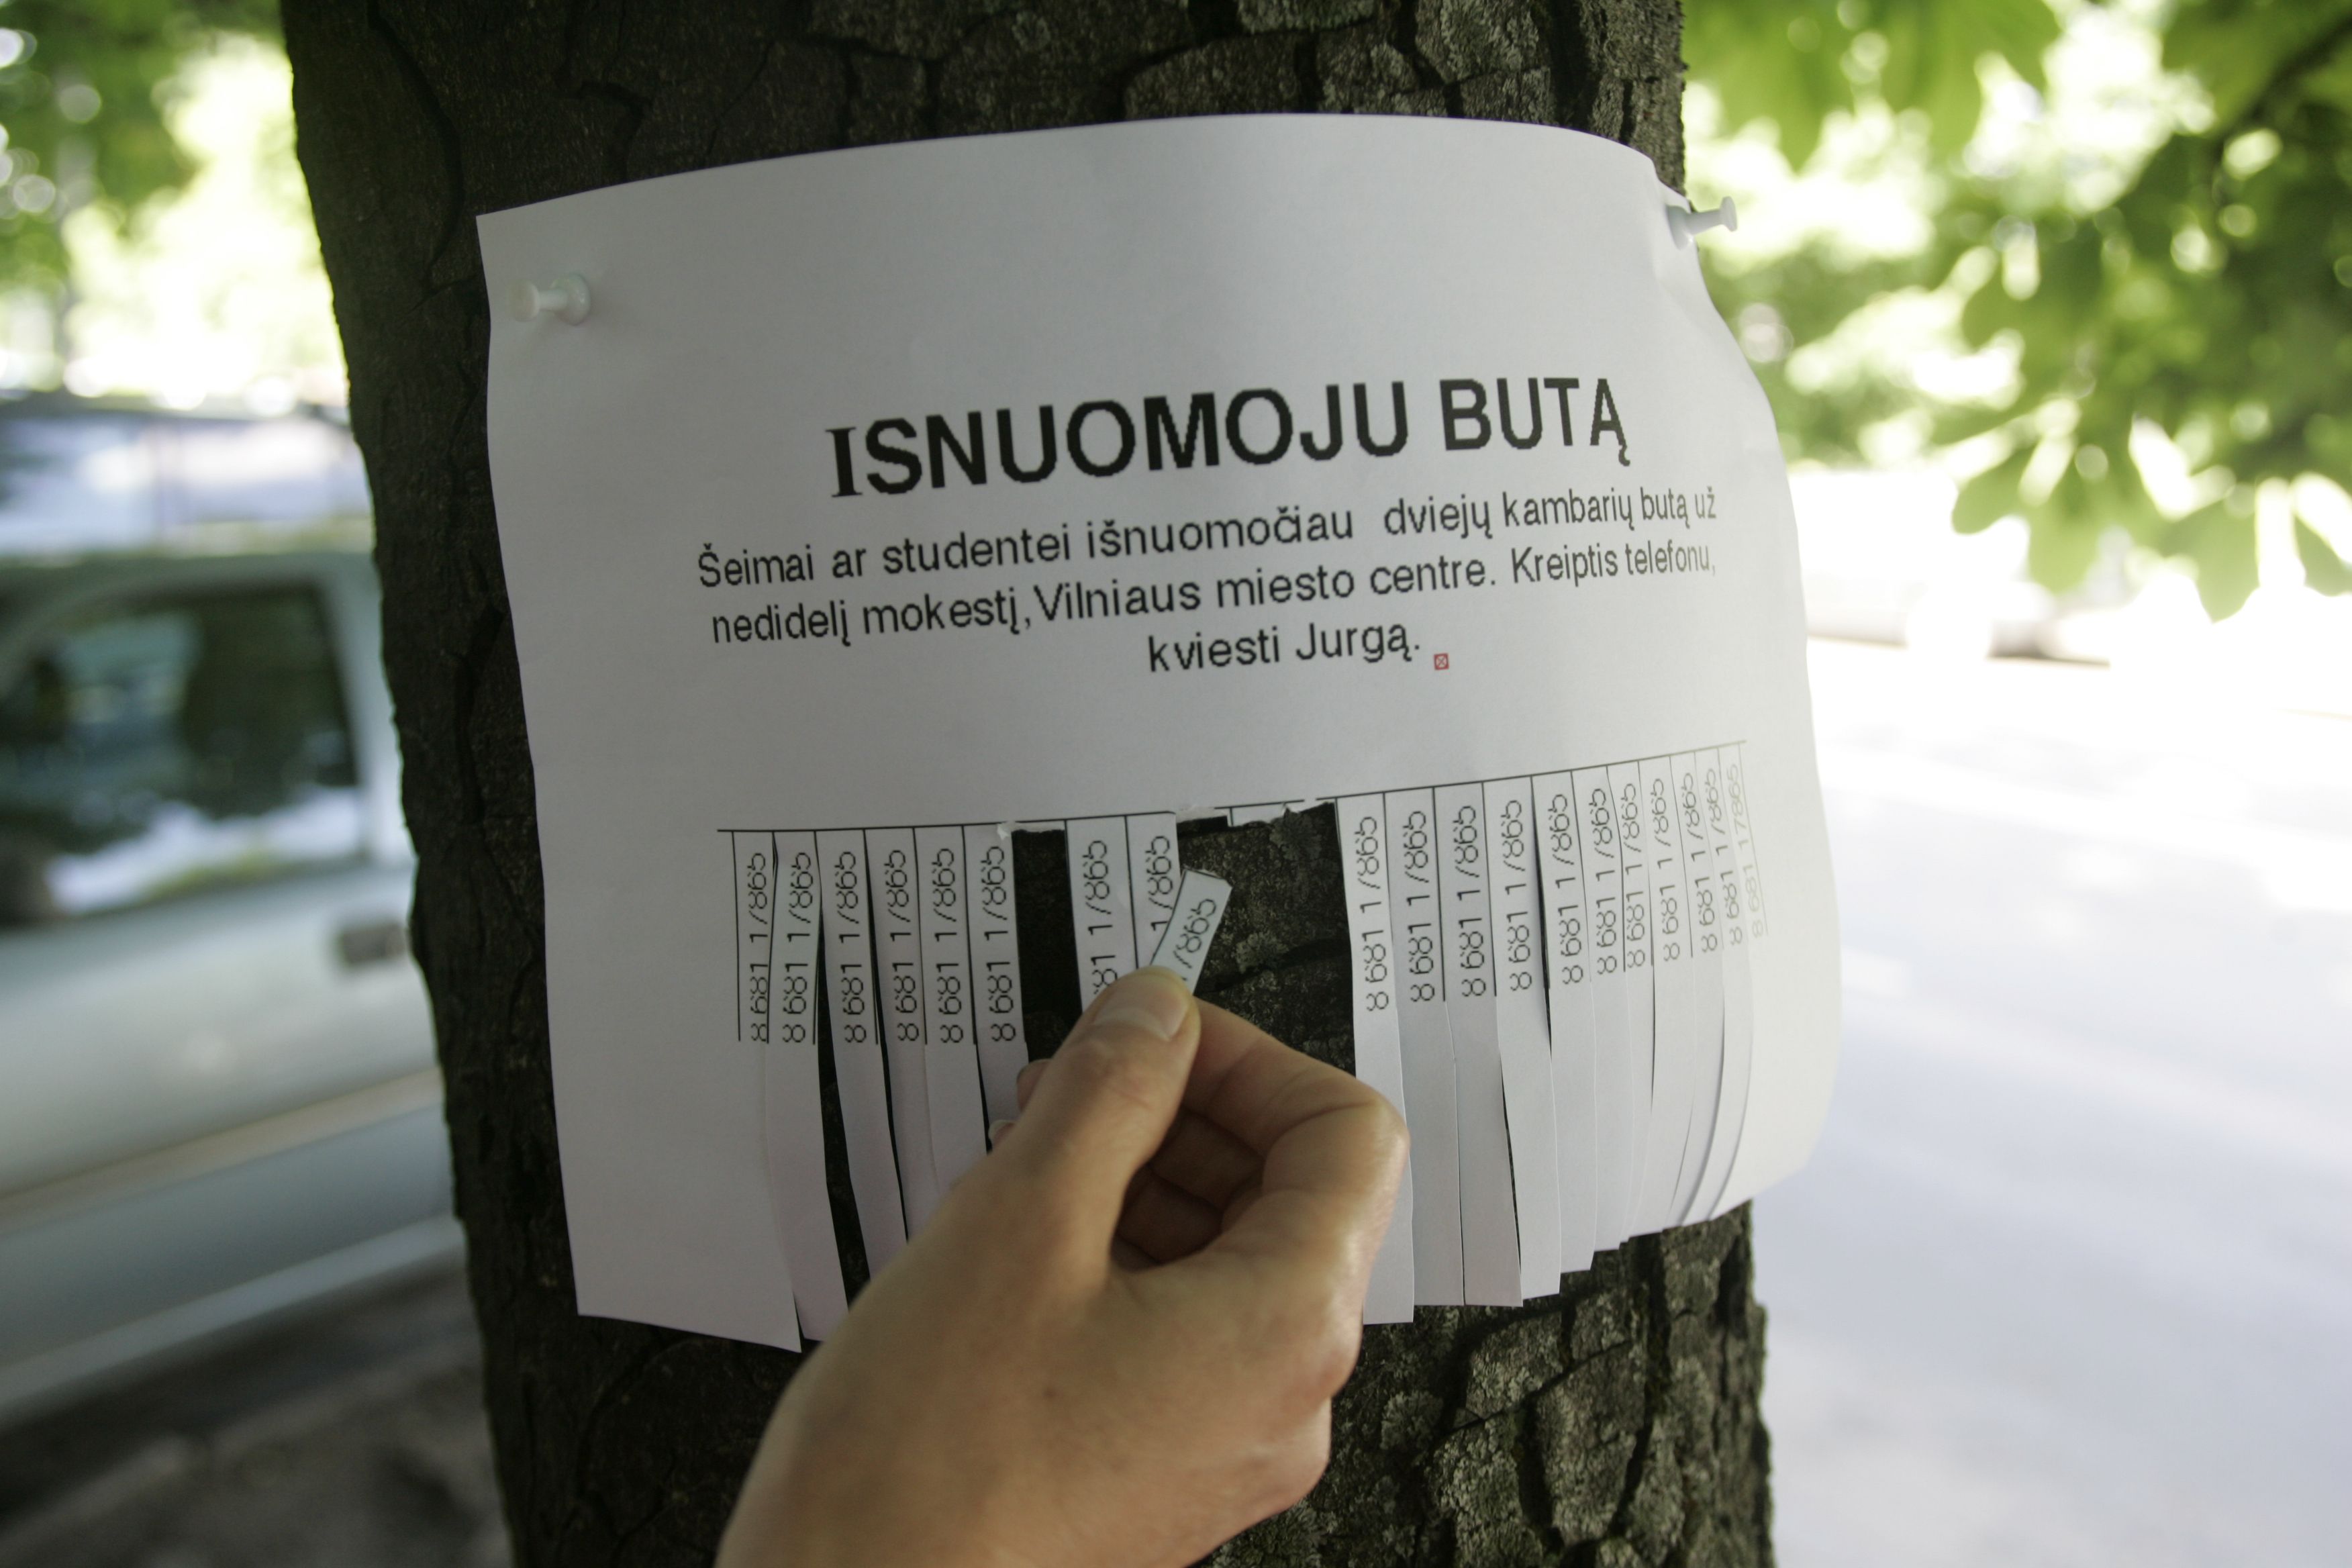 ISNUOMOJU BUTĄ
Šeimai ar studentei išnuomočiau dviejų kambarių butą už
nedidelį mokestį, Vilniaus miesto centre. Kreiptis telefonu,
kviesti Jurgą.
8 681 17865
8 681 17865
8 681 17865
8 681 17865
8 681 17865
8 681 17865
81 17865
17865
7865
8 681 17865
8 681 17865
8 681 17865
8 681 17865
8 681 17865
8 681 17865
8 681 17865
8 681 17865
8 681 17865
8 681 17865
8 681 17865